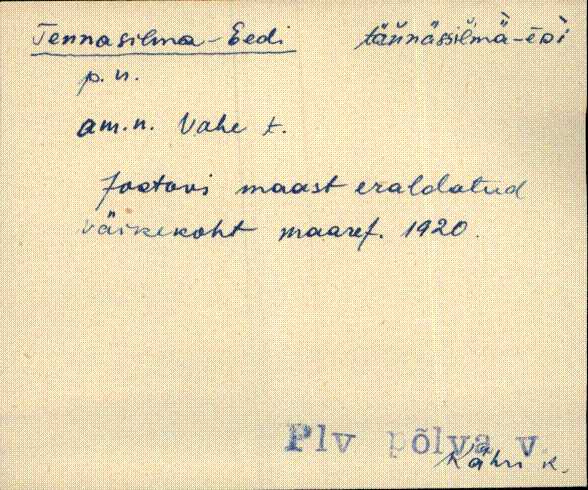 Tennasilma-Eedi tännässilmä-eài
p. n.
am.n. Vahe t.
Jootovi maast eraldatud
väikekoht maaref. 1920.
Plv põlva v.
Kähri k.